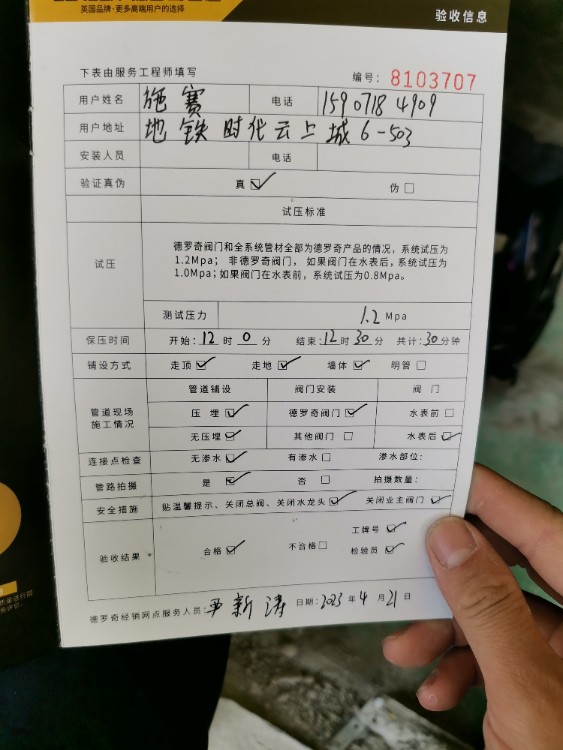 英国品牌·更多高端用户的选择
验收信息
下表由服务工程师填写 编号：8103707
用户姓名 施赛 电话 15907184909
用户地址 地铁时代云上城6-503
安装人员 电话
验证真伪 真☑ 伪□
试压标准
试压
德罗奇阀门和全系统管材全部为德罗奇产品的情况，系统试压为
1.2Mpa； 非德罗奇阀门， 如果阀门在水表后，系统试压为
1.0Mpa；如果阀门在水表前，系统试压为0.8Mpa。
测试压力 1.2 Mpa
保压时间 开始：12 时 0 分 结束：12 时 30 分 共计：30 分钟
铺设方式 走顶☑ 走地☑ 墙体☑ 明管□
管道铺设 阀门安装 阀 门
管道现场
施工情况
压 埋☑ 德罗奇阀门☑ 水表前□
无压埋☑ 其他阀门 □ 水表后☑
连接点检查 无渗水☑ 有渗水□ 渗水部位：
管路拍摄 是☑ 否 □ 拍摄数量：
安全措施 贴温馨提示、关闭总阀、关闭水龙头☑ 关闭业主阀门☑
验收结果 合格☑ 不合格□
工牌号☑
检验员☑
德罗奇经销网点服务人员： 新涛 日期：2023 年 4 月 21 日